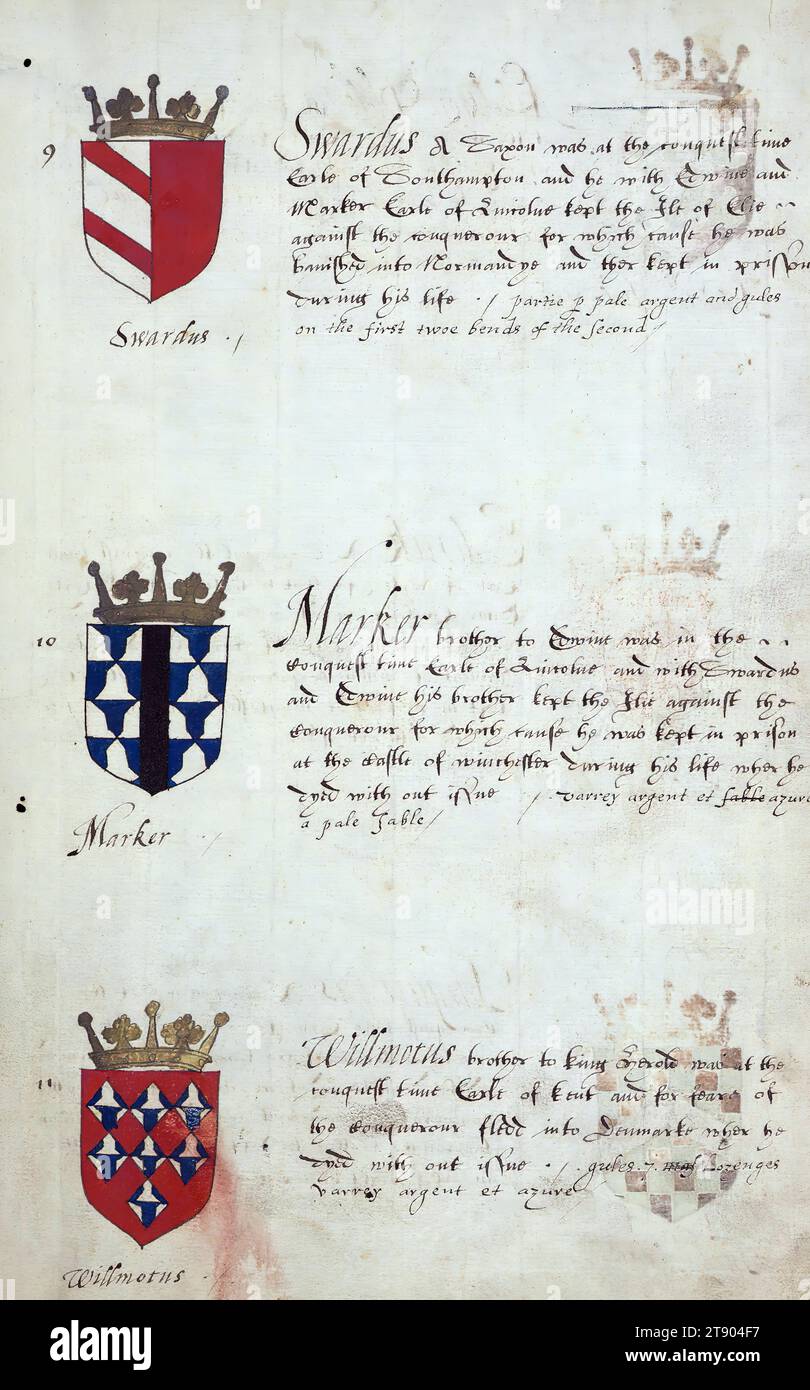 9
Swardus A Saxon was at the conquest time
Earle of Southampton and he with Edwine and
Marker Earle of Lincolne kept the Ile of Elie
against the conquerour for which cause he was
banished into Normandye and ther kept in prisson
during his life ./ partie p pale argent and gules
on the first twoe bends of the second /
Swardus ./
10
Marker brother to Edwine was in the
Conquest time Earle of Lincolne and with Swardus
and Edwine his brother kept the Ilie against the
Conquerour for which cause he was kept in prison
at the Castle of winchester during his life wher he
dyed with out issue /. varrey argent et sable azure
a pale sable /
Marker ./
11
Willmotus brother to king Herold was at the
conquest time Earle of kent and for feare of
the Conquerour fledd into Denmarke wher he
dyed with out issue ./. gules 7 Lozenges
varrey argent et azure
Willmotus ./
alamy
alamy
alamy
Image ID: 2T904F7
www.alamy.com